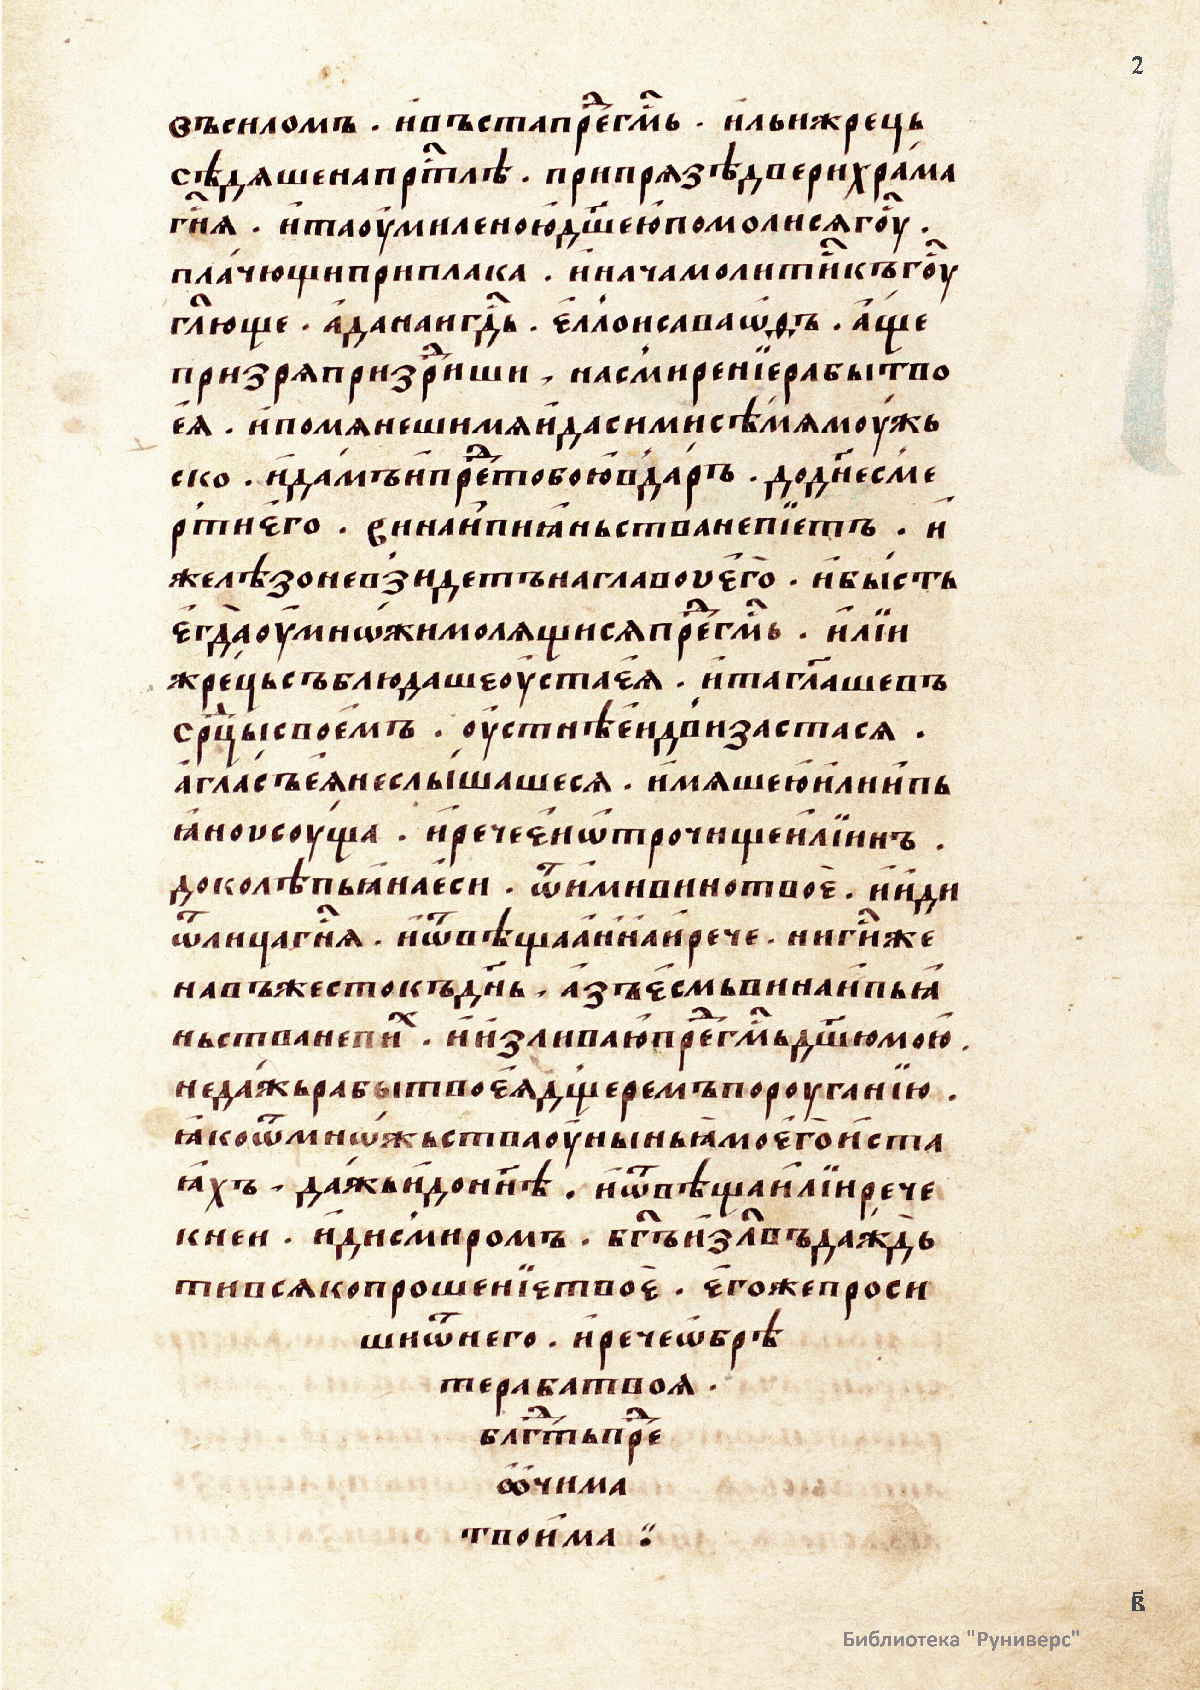 2
въсиломъ · и҆въстапрⷣегмⷭ҇ь · и҆льижрець
сѣдяшенапрⷭ҇тлѣ · припрязѣдверихра́ма
гнⷭ҇я · и҆таоу҆миленою҆дш҃ею҆помолисягоⷭ҇у ·
пла́чющиприплака · и҆начамолитиⷭ҇къгоⷭ҇у
глⷭ҇юще · а҆данаигдⷭ҇ь · є҆ллоисаваѡѳъ · а҆ще
призряпризрⷭ҇иши , насмиренїерабытво
е҆я · и҆помянешимяи҆дасимисѣмямоу́жь
ско · и҆да́мъи҆прⷣетобою҆вда́ръ · доднⷭ҇есме
ртнє҆го · винаи҆пиꙗ҆ньстванепїетъ · и҆
желѣзоневзидетънаглавоує҆гѡ · и҆бы́сть
є҆гда̀оу҆мнѡ́жимолящисяпрⷣегмⷭ҇ь · и҆лїи
жре́цьсъблюдашеоу҆стає҆я · и҆тагл҃ашевъ
срⷣцысвое҆мъ · оу҆стнѣе҆идви́застася ·
а҆гла́съе҆янеслы́шашеся · и҆мяшею҆и҆лии҆пь
ꙗ҆ноусоу́ща · и҆речеє҆иѡ҆трочищеи҆лїинъ ·
доколѣпьꙗ҆нае҆си · ѿи҆мивинотвоѐ · и҆и҆ди
ѿлицагнⷭ҇я · и҆ѿвѣщаа҆ннаи҆рече · нигиⷭ҇же
навъжестокъднⷭ҇ь , а҆зъє҆смьвинаи҆пьꙗ҆
ньстванепиⷯ · и҆и҆зливаю҆прⷣегмⷭ҇ьдш҃юмою҆ ·
неда́жьрабытвоє҆ядщеремъпороуганїю ·
ꙗ҆коѿмнѡ́жьстваоу҆ныньꙗ҆моє҆гѡи҆ста
ꙗ҆хъ , да́жьи҆донн҃ѣ · и҆ѿвѣщаи҆лїирече
кнеи · и҆дисми́ромъ · бг҃ъи҆злⷭ҇въда́ждь
тивсякопрошенїєтвоѐ · є҆гожепроси
шиѿнего · и҆речеѡ҆брѣ
терабатвоя ·
блгⷣтьпрⷣе
ꙭчима
твои҆ма ⁘
в҃
Библиотека "Руниверс"